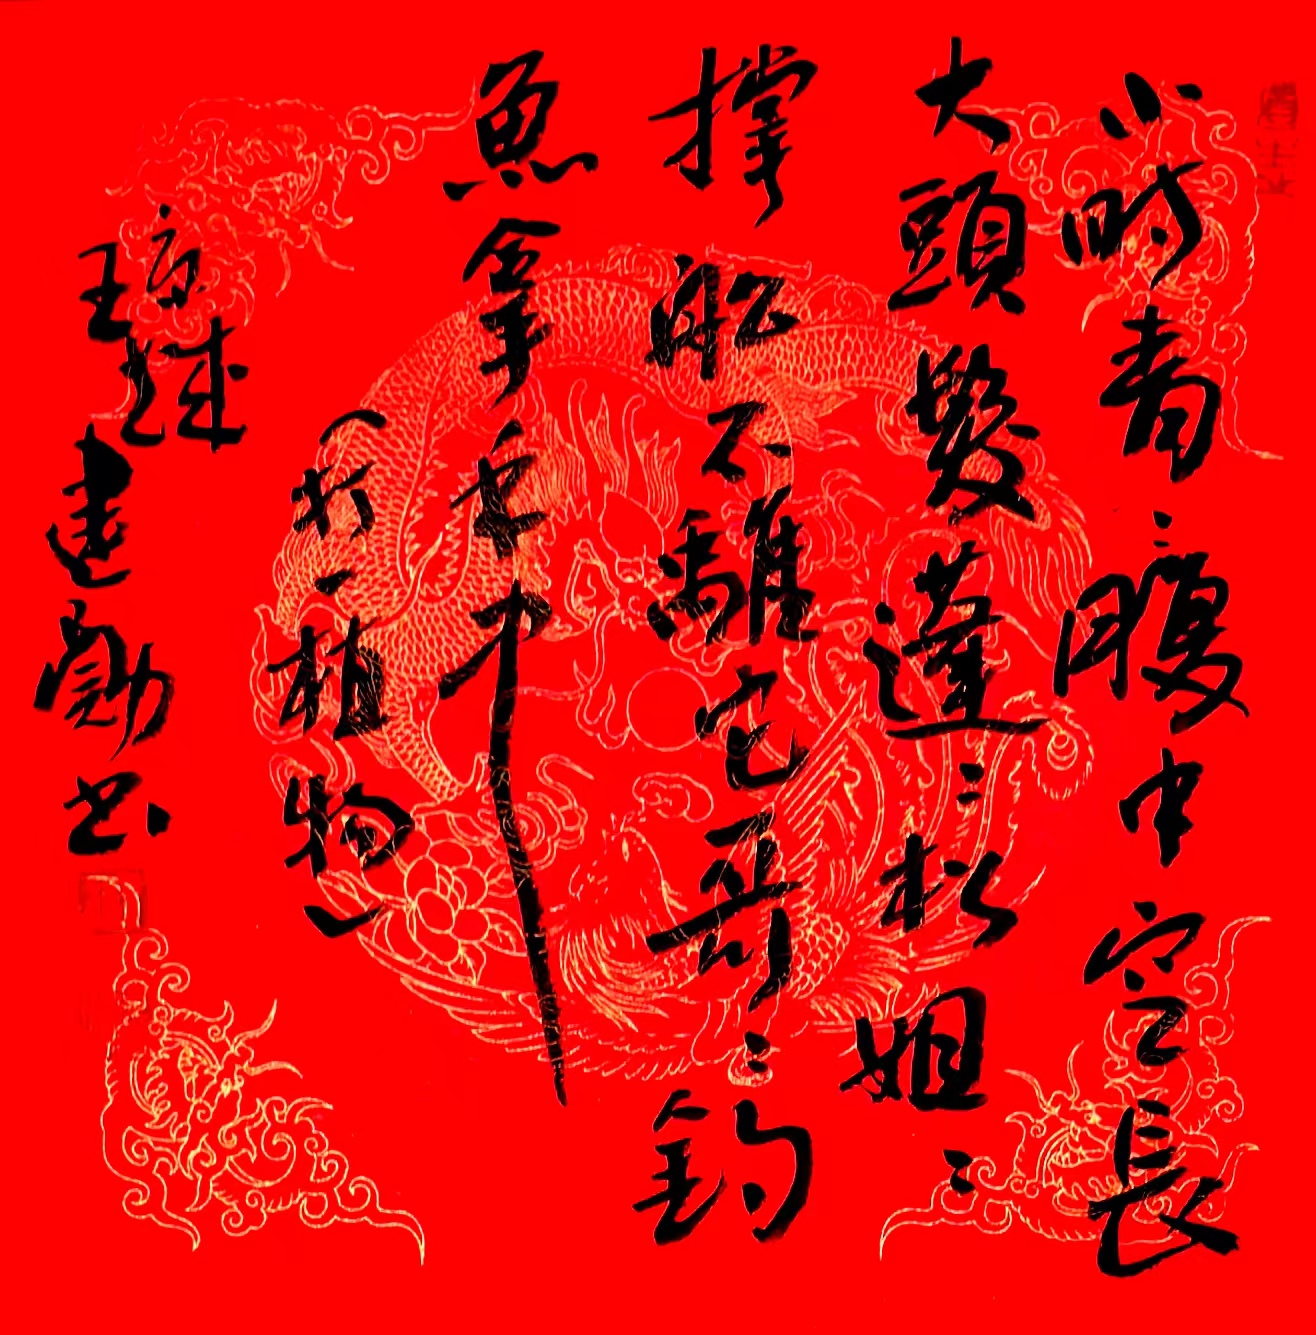 小時青〻腹中空長
大頭髮蓬〻松姐〻
撐船不離它哥〻釣
魚拿手中
(打一植物)
琼球建勳书